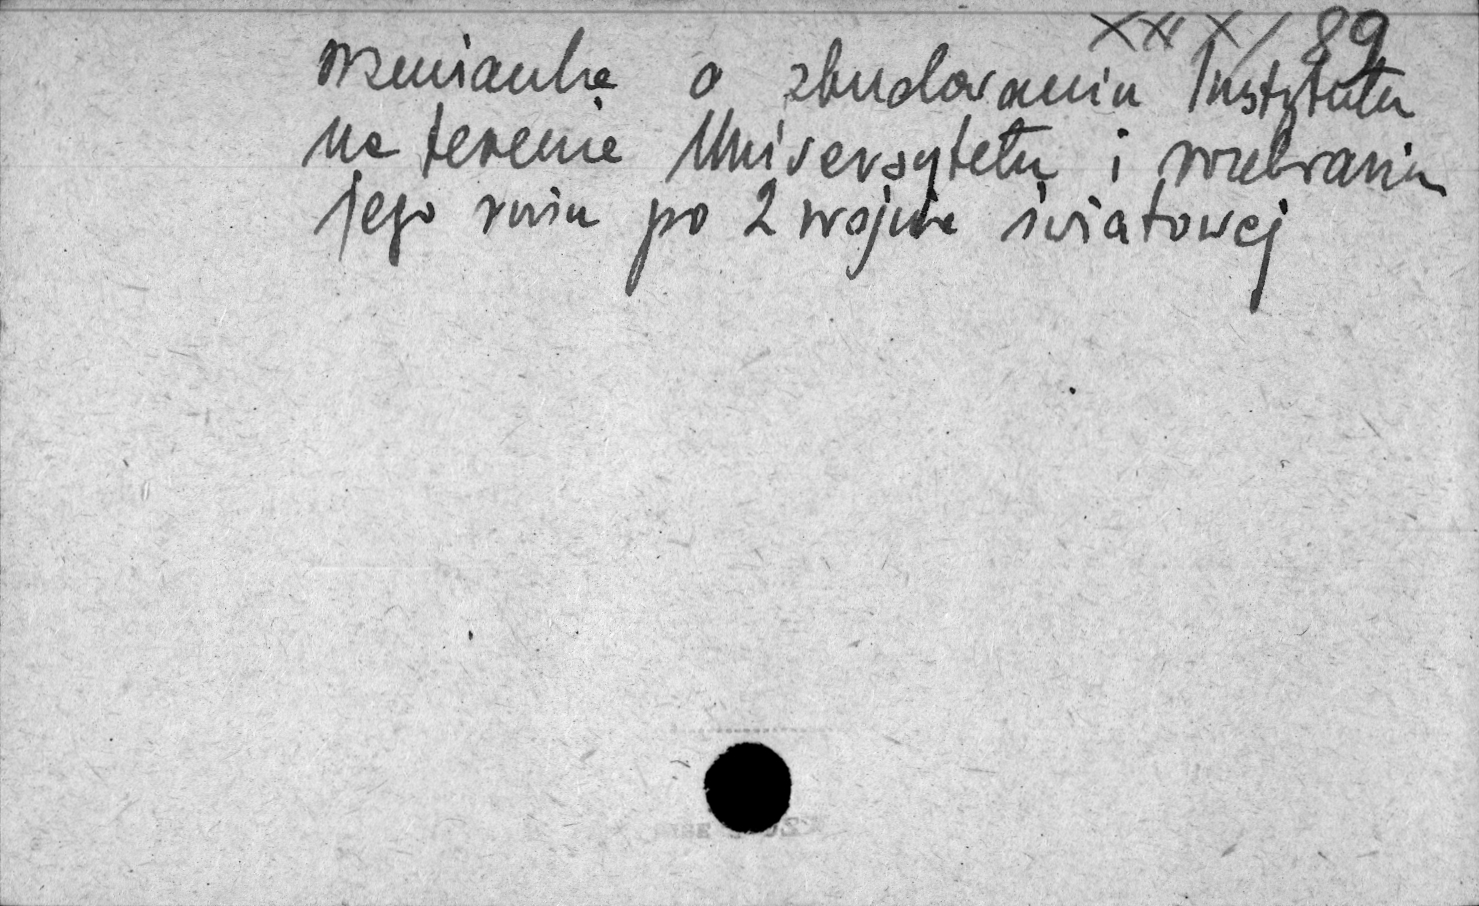 XXX/89
wzmianka o zbudowaniu Instytutu
na terenie Uniwersytetu i rozebraniu
jego ruin po 2 wojnie światowej